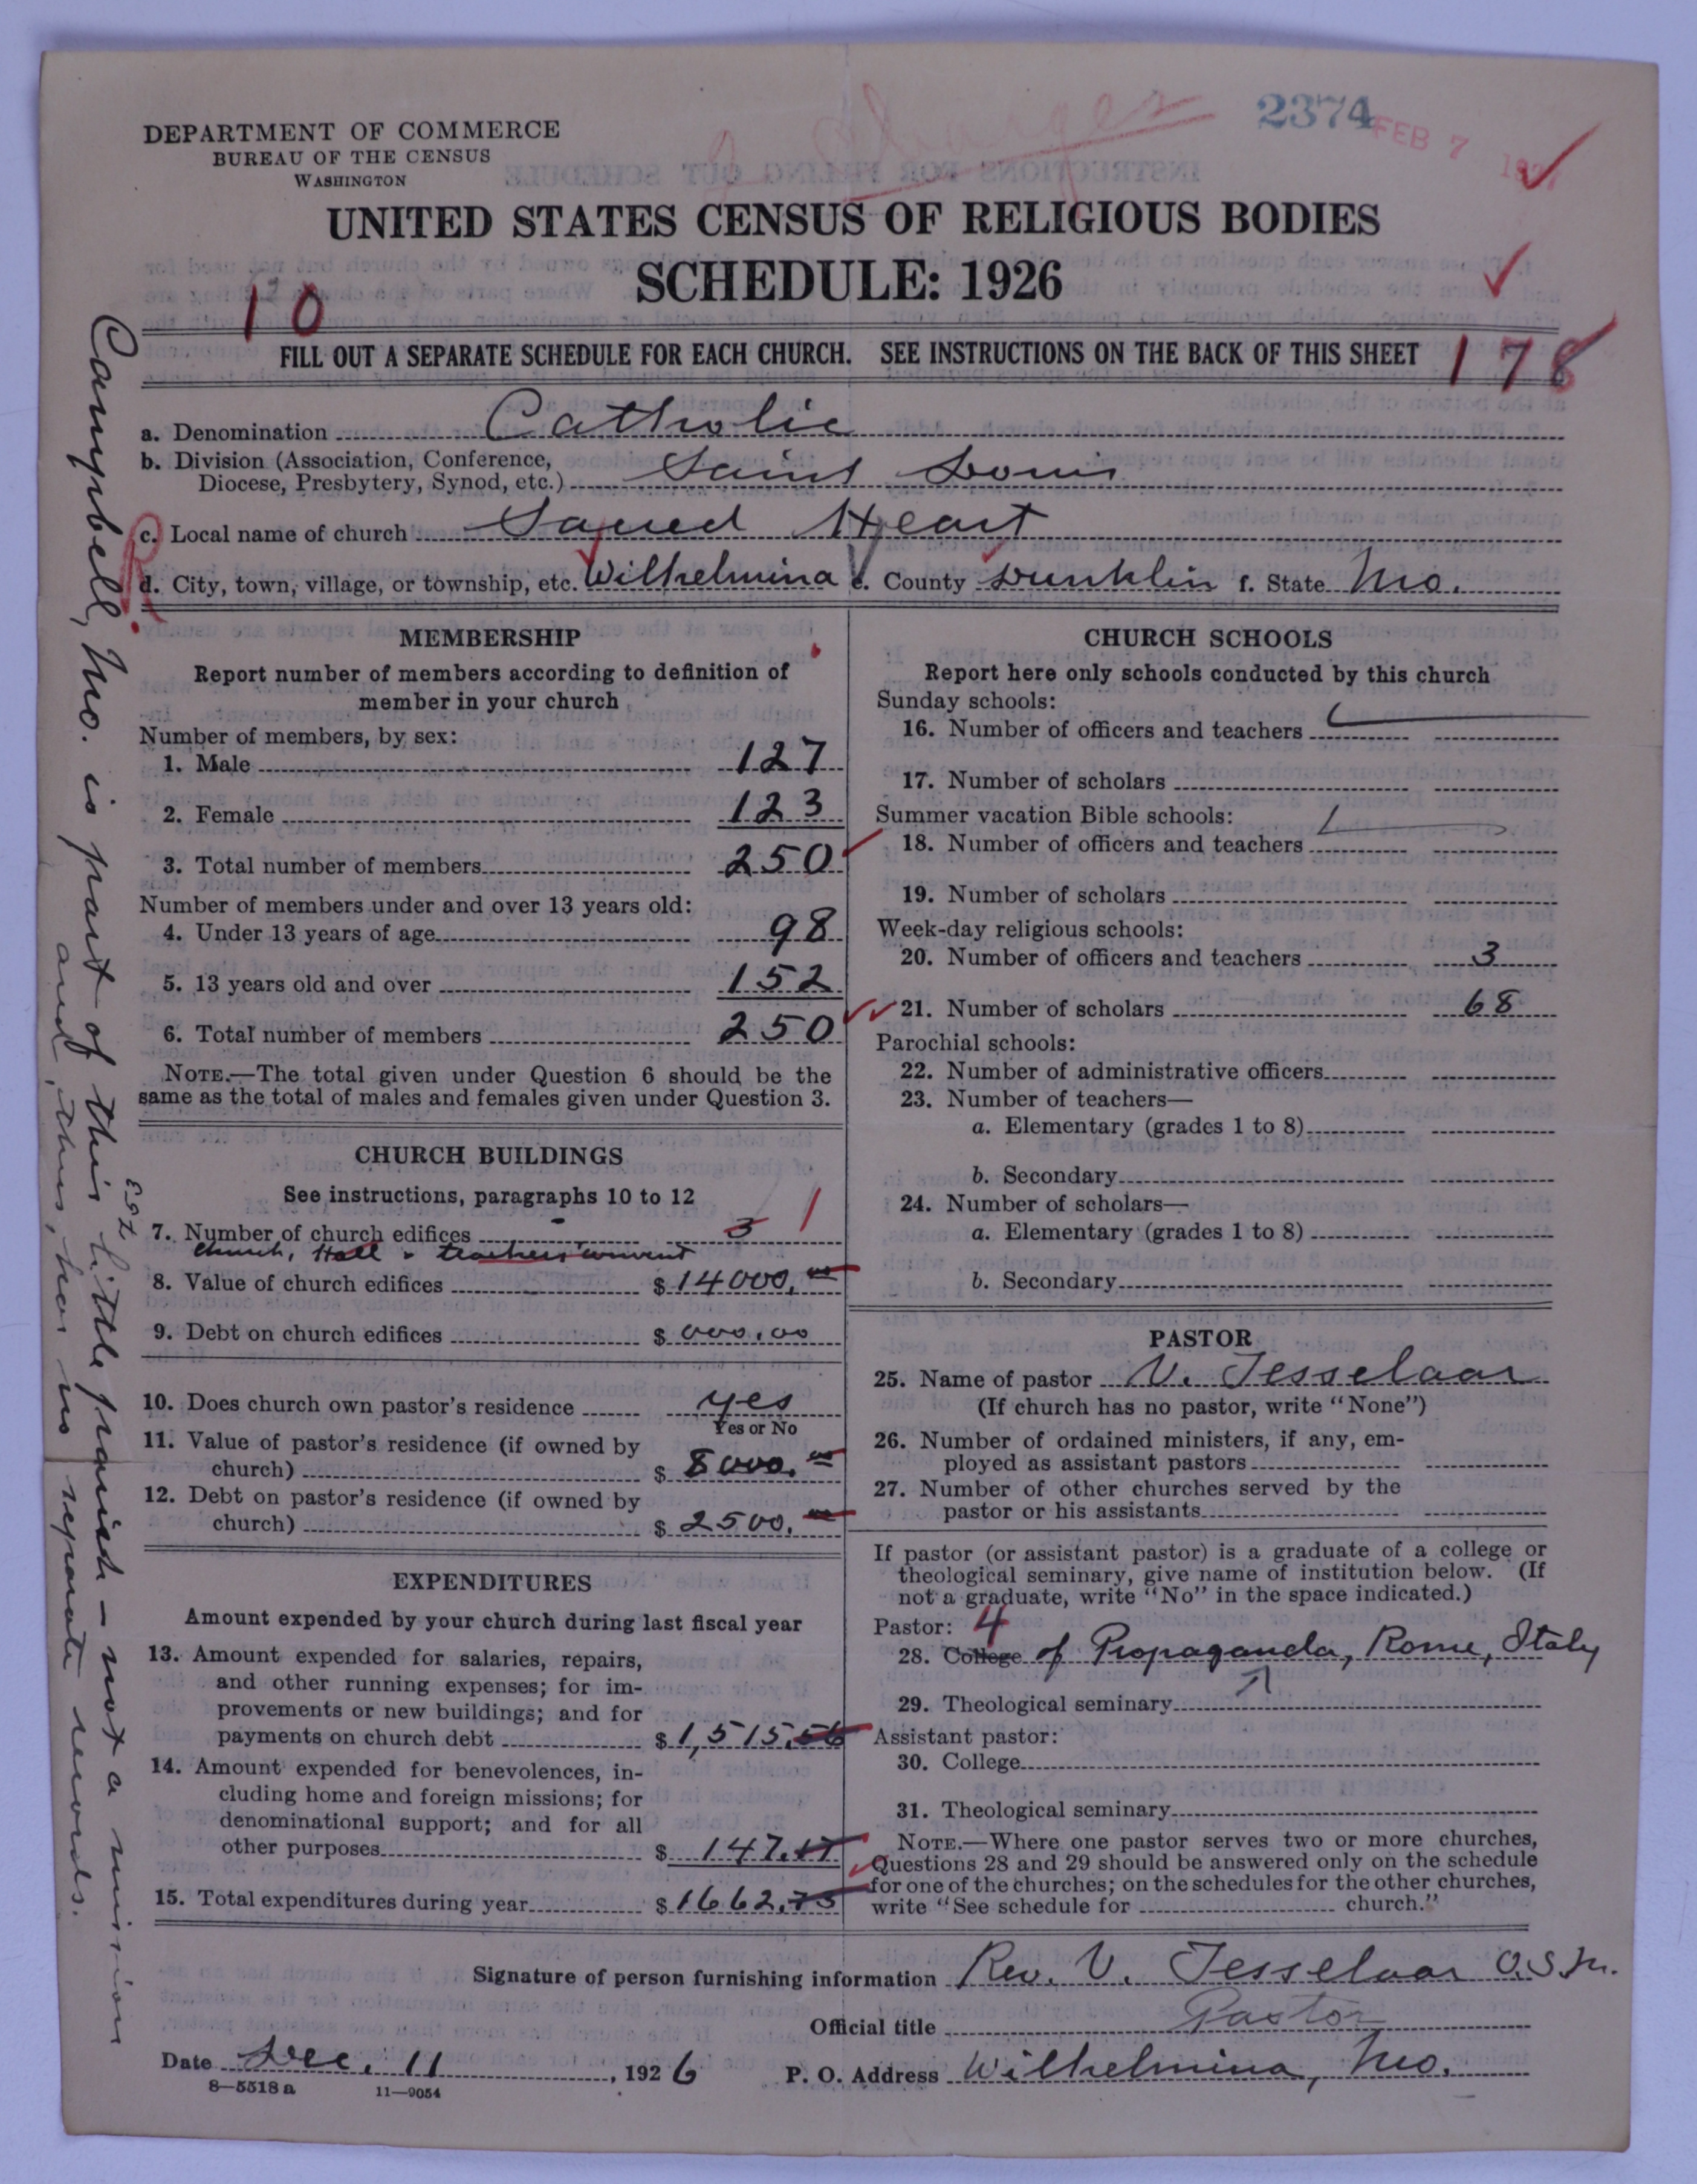 2374
FEB 7
DEPARTMENT OF COMMERCE
BUREAU OF THE CENSUS
WASHINGTON
UNITED STATES CENSUS OF RELIGIOUS BODIES
SCHEDULE: 1926
10
FILL OUT A SEPARATE SCHEDULE FOR EACH CHURCH. SEE INSTRUCTIONS ON THE BACK OF THIS SHEET 178
a. Denomination Catholic
b. Division (Association, Conference,
Diocese, Presbytery, Synod, etc.) Saint Louis
c. Local name of church Sacred Heart
d. City, town, village, or township, etc. Wilhelmina e. County Dunklin f. State Mo.
MEMBERSHIP
Report number of members according to definition of
member in your church
Number of members, by sex:
1. Male 127
2. Female 123
3. Total number of members 250
Number of members under and over 13 years old:
4. Under 13 years of age 98
5. 13 years old and over 152
6. Total number of members 250
NOTE.—The total given under Question 6 should be the
same as the total of males and females given under Question 3.
CHURCH BUILDINGS
See instructions, paragraphs 10 to 12
7. Number of church edifices 3 1
Church, Hall & teachers' convent
8. Value of church edifices $14000.00
9. Debt on church edifices $000.00
10. Does church own pastor's residence yes
Yes or No
11. Value of pastor's residence (if owned by
church) $8000.00
12. Debt on pastor's residence (if owned by
church) $2500.00
EXPENDITURES
Amount expended by your church during last fiscal year
13. Amount expended for salaries, repairs,
and other running expenses; for im-
provements or new buildings; and for
payments on church debt $1,515.56
14. Amount expended for benevolences, in-
cluding home and foreign missions; for
denominational support; and for all
other purposes $147.17
15. Total expenditures during year $1662.73
CHURCH SCHOOLS
Report here only schools conducted by this church
Sunday schools:
16. Number of officers and teachers
17. Number of scholars
Summer vacation Bible schools:
18. Number of officers and teachers
19. Number of scholars
Week-day religious schools:
20. Number of officers and teachers 3
21. Number of scholars 68
Parochial schools:
22. Number of administrative officers
23. Number of teachers—
a. Elementary (grades 1 to 8)
b. Secondary
24. Number of scholars—
a. Elementary (grades 1 to 8)
b. Secondary
PASTOR
25. Name of pastor V. Tesselaar
(If church has no pastor, write "None")
26. Number of ordained ministers, if any, em-
ployed as assistant pastors
27. Number of other churches served by the
pastor or his assistants
If pastor (or assistant pastor) is a graduate of a college or
theological seminary, give name of institution below. (If
not a graduate, write "No" in the space indicated.)
Pastor: 4
28. College of Propaganda, Rome, Italy
29. Theological seminary
Assistant pastor:
30. College
31. Theological seminary
NOTE.—Where one pastor serves two or more churches,
Questions 28 and 29 should be answered only on the schedule
for one of the churches; on the schedules for the other churches,
write "See schedule for church."
Signature of person furnishing information Rev. V. Tesselaar O.S.M.
Official title Pastor
Date Dec. 11, 1926 P. O. Address Wilhelmina, Mo.
8—5518 a 11—9054
Campbell, Mo. is part of this little parish - not a mission
and, thus, has no separate records.